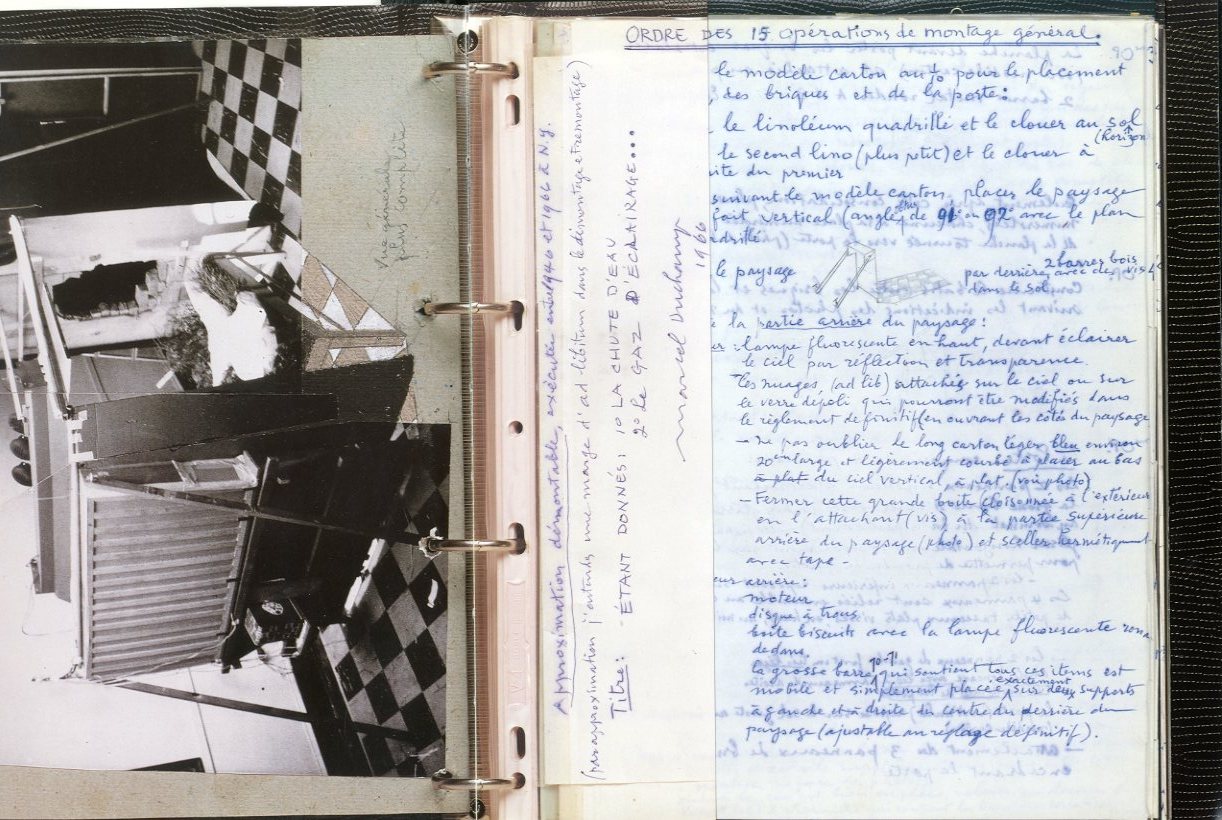 Vue générale
plus complète
Approximation démontable, exécutée entre 1946 et 1966 à N.Y.
(par approximation j'entends une marge d'ad libitum dans le démontage et remontage)
Titre: - ÉTANT DONNÉS: 1º LA CHUTE D'EAU
2º LE GAZ D'ÉCLAIRAGE...
Marcel Duchamp
1966
ORDRE DES 15 opérations de montage général.
le modèle carton au 1/10 pour le placement
des briques et de la porte:
le linoléum quadrillé et le clouer au sol
(horizon
le second lino (plus petit) et le clouer à
ite du premier
suivant le modèle carton, placer le paysage
fait vertical (angle de 91º ou 92º avec le plan
adrillé
le paysage
par derrière, avec de vis
2 barres bois
dans le sol
la partie arrière du paysage:
lampe fluorescente en haut, devant éclairer
le ciel par réflection et transparence.
- les nuages, (ad lib) attachés sur le ciel ou sur
le verre dépoli qui pourront être modifiés dans
le règlement définitif (en ouvrant les côtés du paysage
- Ne pas oublier le long carton léger bleu environ
20 cm large et légèrement courbé à placer au bas
à plat du ciel vertical, à plat. (voir photo)
- Fermer cette grande boite cloisonnée à l'extérieur
en l'attachant (vis) à la partie supérieure
arrière du paysage (photo) et sceller hermétiquement
avec tape -
eur arrière:
moteur
disque à trous
boîte biscuits avec la lampe fluorescente
dedans,
la grosse barre qui soutient tous ces items est
mobile et simplement placée exactement sur deux supports
à gauche et à droite du centre du derrière du
paysage (ajustable au réglage définitif).